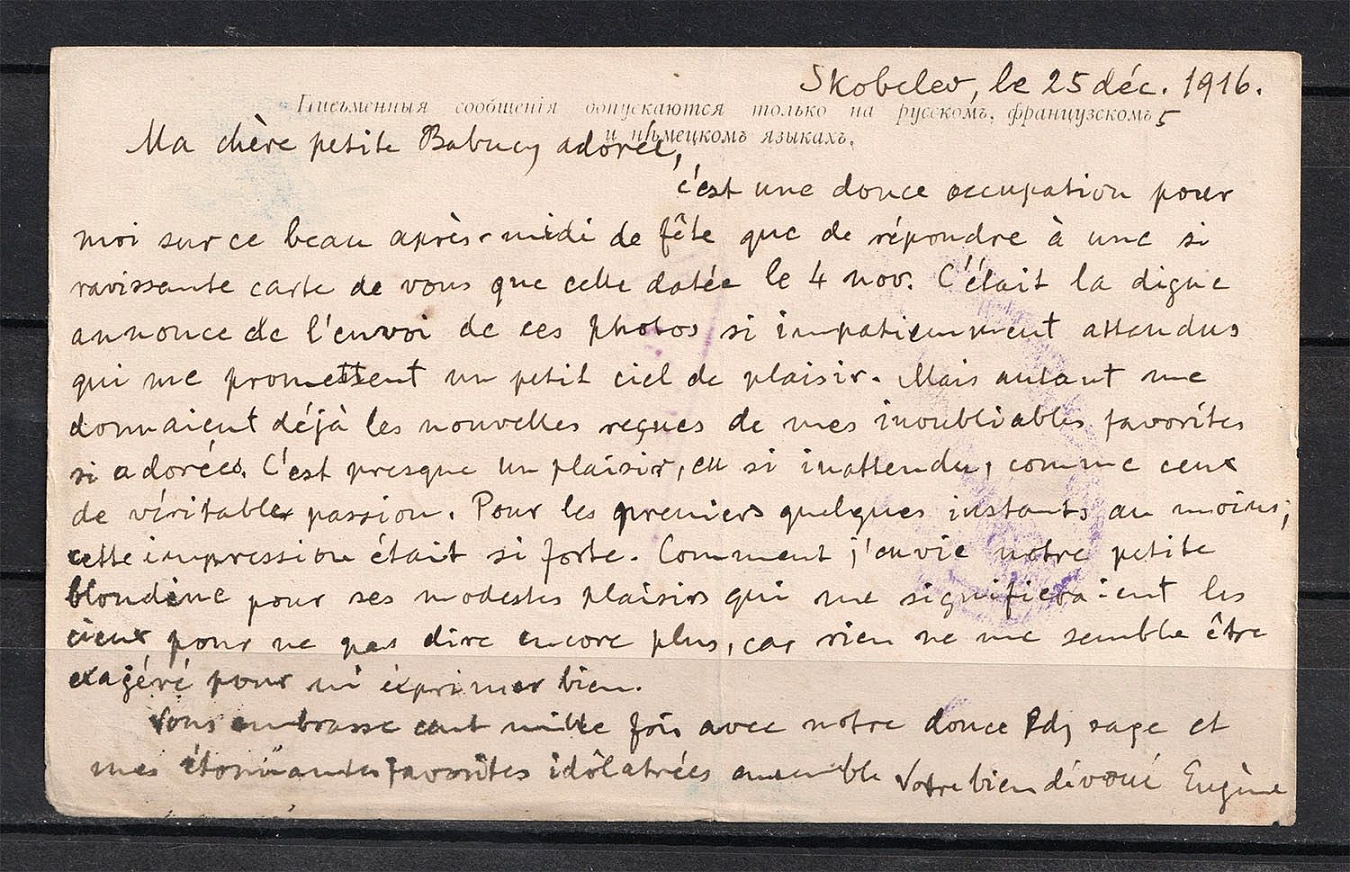 Skobelev, le 25 déc. 1916.
Письменныя сообщенія допускаются только на русскомъ, французскомъ 5
и нѣмецкомъ языкахъ.
Ma chère petite Babucy adorée,
c'est une douce occupation pour
moi sur ce beau après-midi de fête que de répondre à une si
ravissante carte de vous que celle datée le 4 nov. C'était la digne
annonce de l'envoi de ces photos si impatiemment attendus
qui me promettent un petit ciel de plaisir. Mais autant me
donnaient déjà les nouvelles reçues de mes inoubliables favorites
si adorées. C'est presque un plaisir, si inattendu, comme ceux
de véritables passion. Pour les premiers quelques instants au moins,
cette impression était si forte. Comment j'envie notre petite
blondine pour ses modestes plaisirs qui me signifieraient les
cieux pour ne pas dire encore plus, car rien ne me semble être
exagéré pour m'éxprimer bien.
Vous embrasse cent mille fois avec notre douce sage et
mes étonnantes favorites idôlatrées ensemble Votre bien dévoué Eugène